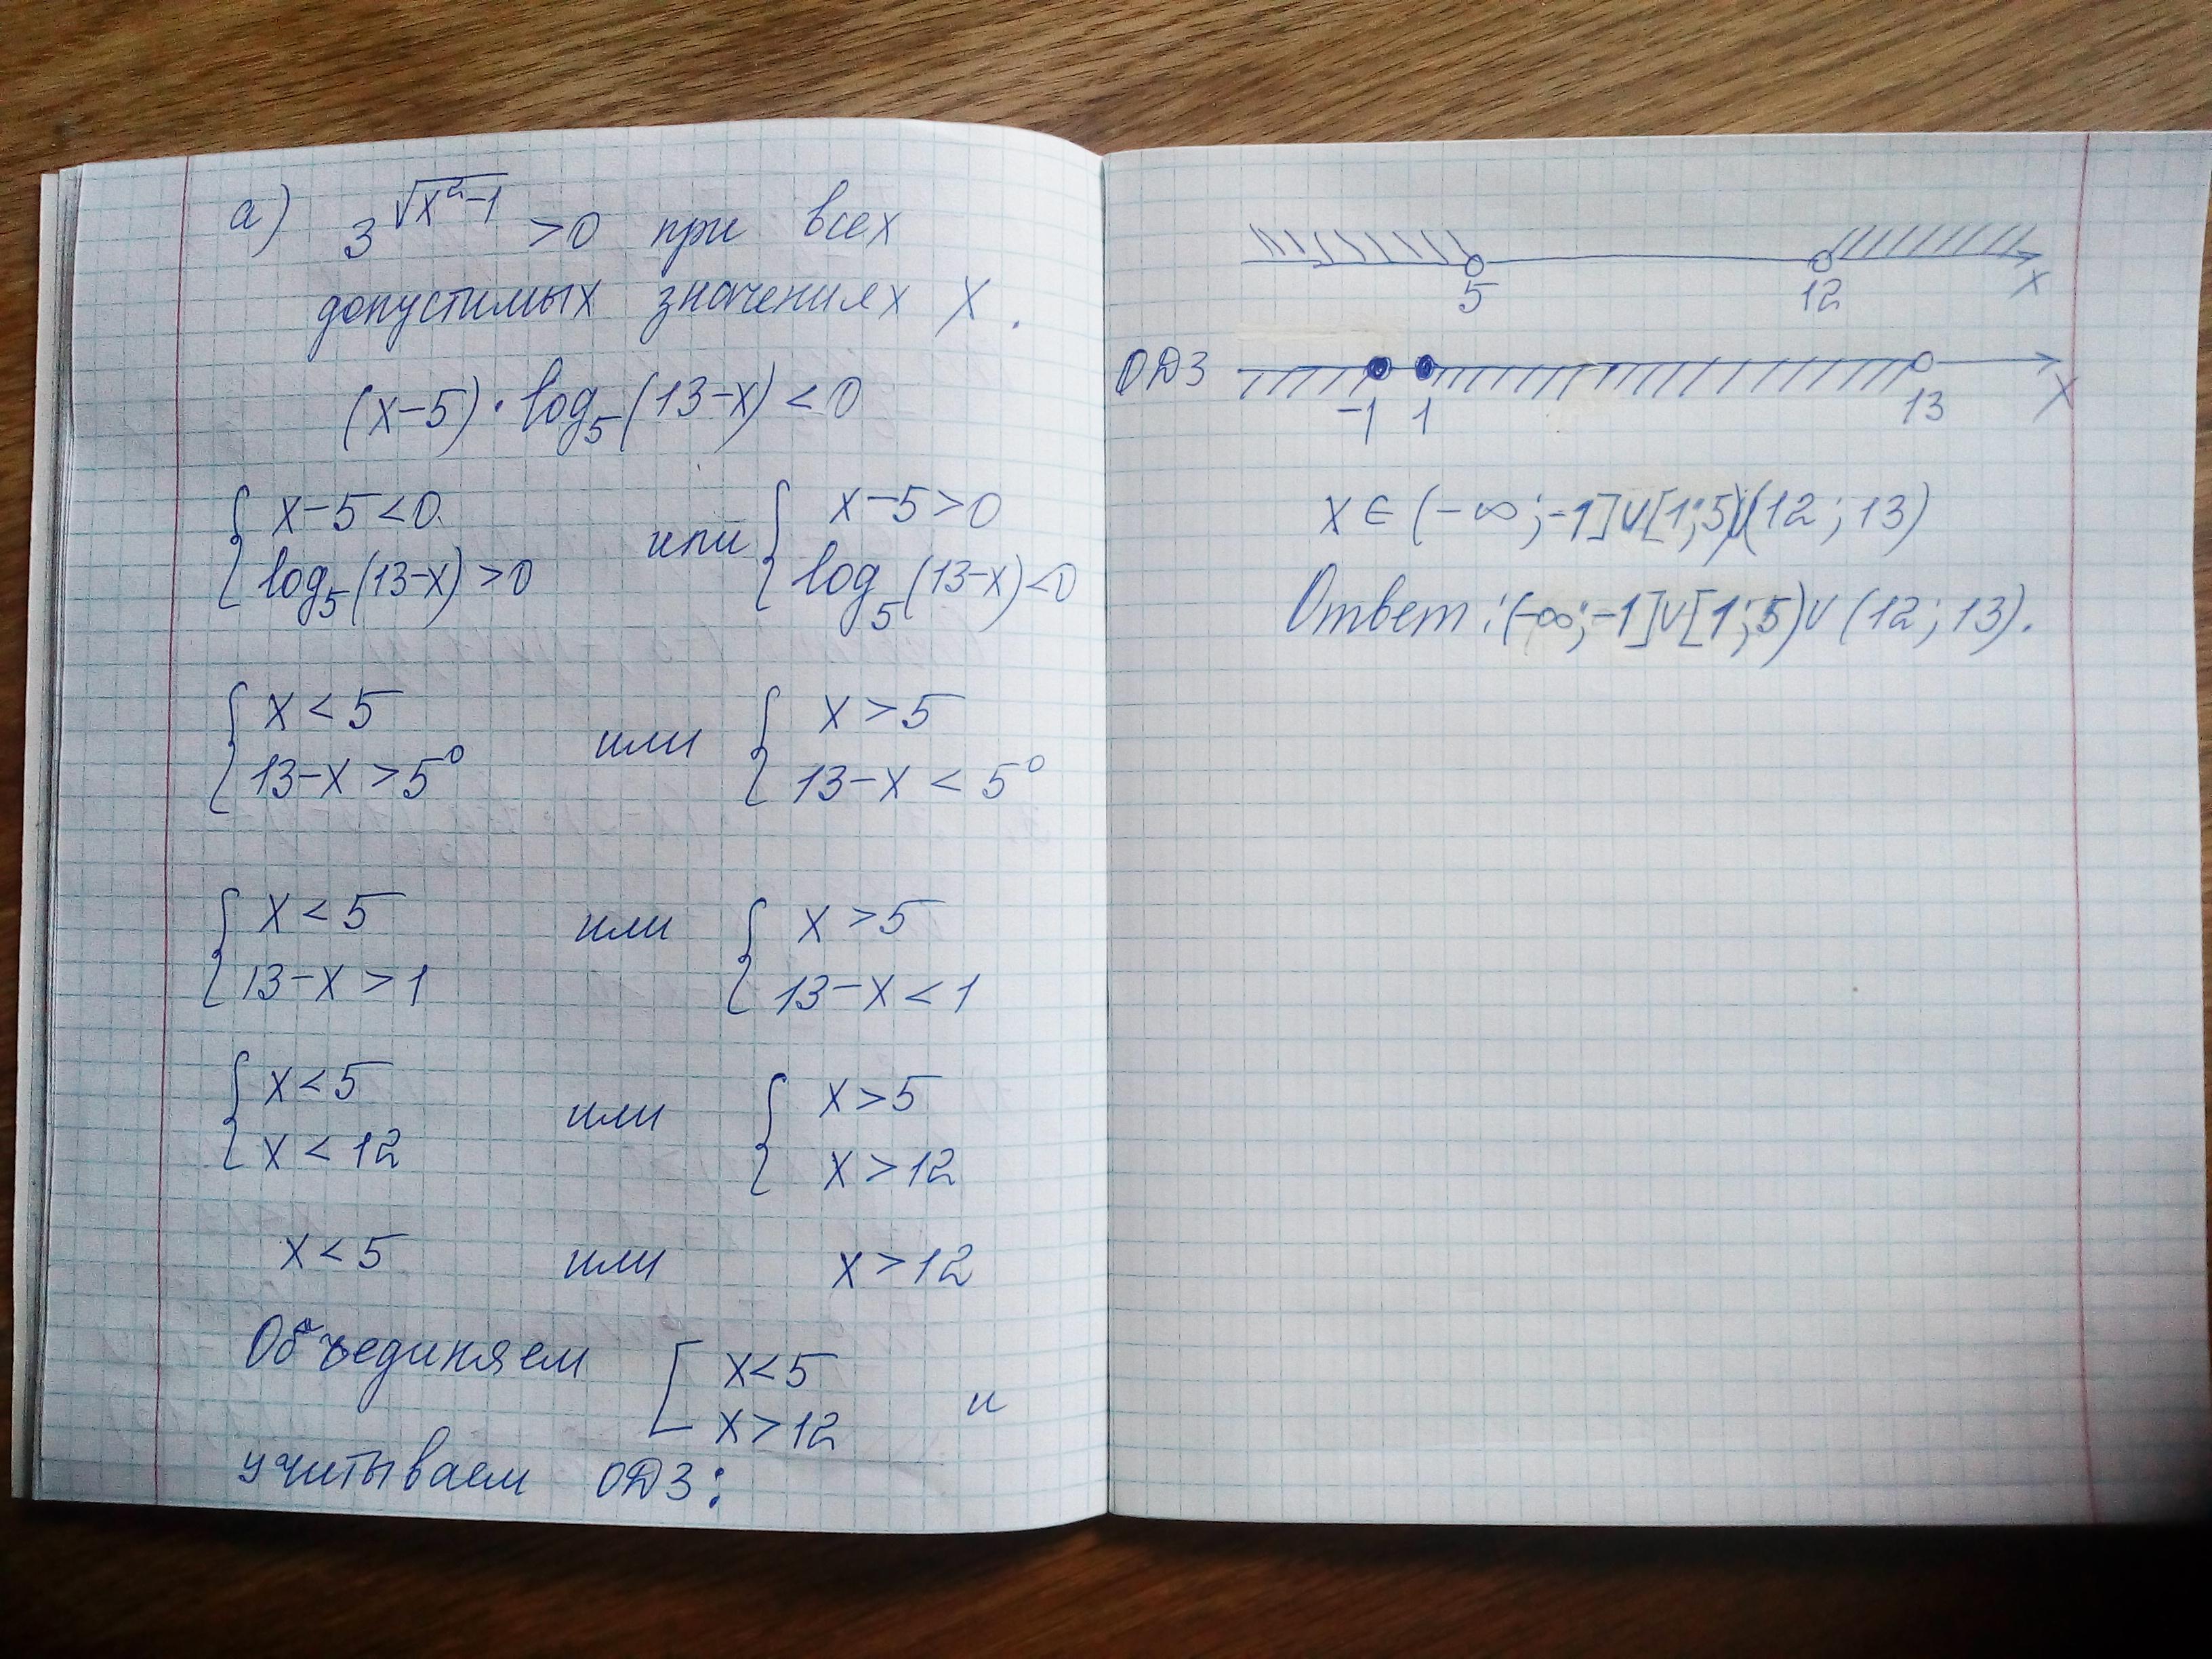 а) 3^√(x²-1) >0 при всех
допустимых значениях X.
(x-5)·log₅(13-x)<0
{ x-5<0 или { x-5>0
{ log₅(13-x)>0 { log₅(13-x)<0
{ x<5 или { x>5
{ 13-x>5⁰ { 13-x<5⁰
{ x<5 или { x>5
{ 13-x>1 { 13-x<1
{ x<5 или { x>5
{ x<12 { x>12
x<5 или x>12
Объединяем [ x<5 и
[ x>12
учитываем ОДЗ:
5 12 x
ОДЗ -1 1 13 x
x∈(-∞;-1]∪[1;5)∪(12;13)
Ответ: (-∞;-1]∪[1;5)∪(12;13).